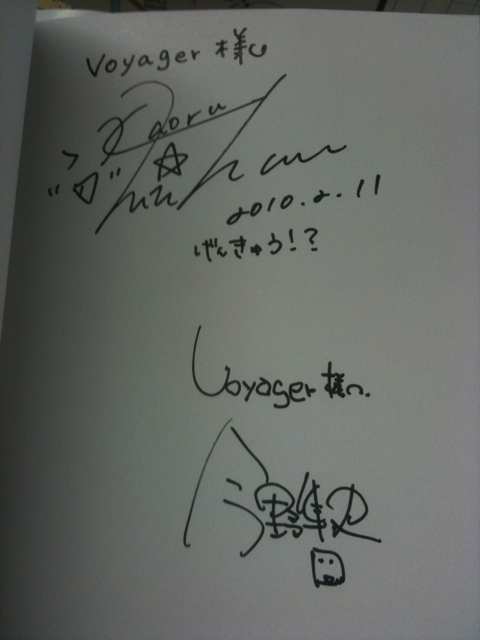 Voyager 様へ
Kaoru
2010.2.11
げんきゅう!?
Voyager 様へ.
今野隼史